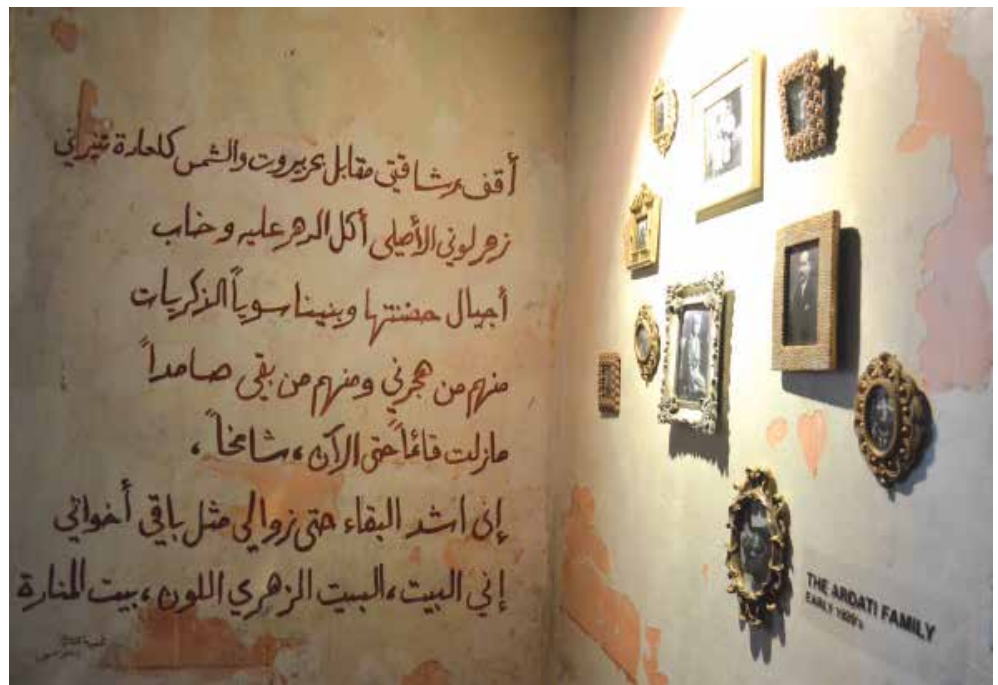 أقف برشاقتي مقابل بحر بيروت والشمس كلعادة تنيرني
زهر لوني الأصلي أكل الدهر عليه وخاب
أجيال حضنتها وبنينا سوياً الذكريات
منهم من هجرني ومنهم من بقى صامداً
مازلت قائماً حتى الآن، شامخاً،
إني انشد البقاء حتى زوالي مثل باقي أخواتي
إني البيت، البيت الزهري اللون، بيت المنارة
THE ARDATI FAMILY
EARLY 1920's